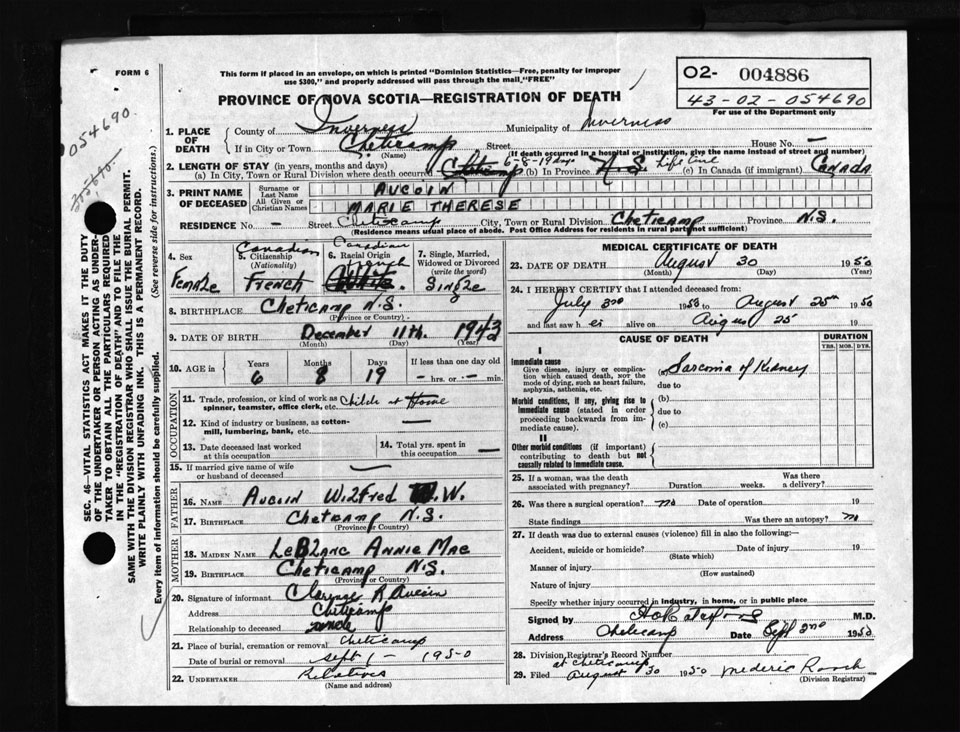 FORM 6
This form if placed in an envelope, on which is printed "Dominion Statistics—Free, penalty for improper
use $300," and properly addressed will pass through the mail "FREE"
02- 004886
43-02-054690
For use of the Department only
PROVINCE OF NOVA SCOTIA—REGISTRATION OF DEATH
054690
1. PLACE OF DEATH
County of Inverness Municipality of Inverness
If in City or Town Cheticamp Street House No. —
(Name) (If death occurred in a hospital or institution, give the name instead of street and number)
2. LENGTH OF STAY (in years, months and days)
(a) In City, Town or Rural Division where death occurred Cheticamp 6-8-19 days (b) In Province N.S. Life time (c) In Canada (if immigrant) Canada
3. PRINT NAME OF DECEASED
Surname or Last Name AUCOIN
All Given or Christian Names MARIE THERESE
RESIDENCE No. — Street Cheticamp City, Town or Rural Division Cheticamp Province N.S.
(Residence means usual place of abode. Post Office Address for residents in rural parts not sufficient)
4. Sex Female
5. Citizenship (Nationality) Canadian French
6. Racial Origin Canadian French White
7. Single, Married, Widowed or Divorced (write the word) Single
8. BIRTHPLACE Cheticamp N.S.
(Province or Country)
9. DATE OF BIRTH December 11th. 1943
(Month) (Day) (Year)
10. AGE in Years 6 Months 8 Days 19 If less than one day old — hrs. or — min.
OCCUPATION
11. Trade, profession, or kind of work as spinner, teamster, office clerk, etc. Childe at Home
12. Kind of industry or business, as cotton-mill, lumbering, bank, etc. —
13. Date deceased last worked at this occupation
14. Total yrs. spent in this occupation —
15. If married give name of wife or husband of deceased
FATHER
16. NAME Aucoin Wilfred W.
17. BIRTHPLACE Cheticamp N.S.
(Province or Country)
MOTHER
18. MAIDEN NAME LeBlanc Annie Mae
19. BIRTHPLACE Cheticamp N.S.
(Province or Country)
20. Signature of informant Clarence R. Aucoin
Address Cheticamp
Relationship to deceased uncle
21. Place of burial, cremation or removal Cheticamp
Date of burial or removal Sept 1 - 1950
22. UNDERTAKER Relatives
(Name and address)
MEDICAL CERTIFICATE OF DEATH
23. DATE OF DEATH August 30 1950
(Month) (Day) (Year)
24. I HEREBY CERTIFY that I attended deceased from:
July 3rd 1950 to August 25th 1950
and last saw h er alive on August 25 19
CAUSE OF DEATH DURATION
YRS. MOS. DYS.
I
Immediate cause
Give disease, injury or complication which caused death, not the mode of dying, such as heart failure, asphyxia, asthenia, etc.
(a) Sarcoma of Kidney
due to
Morbid conditions, if any, giving rise to immediate cause (stated in order proceeding backwards from immediate cause).
(b)
due to
(c)
II
Other morbid conditions (if important) contributing to death but not causally related to immediate cause.
25. If a woman, was the death associated with pregnancy? Duration weeks. Was there a delivery?
26. Was there a surgical operation? no Date of operation 19
State findings Was there an autopsy? no
27. If death was due to external causes (violence) fill in also the following:—
Accident, suicide or homicide? Date of injury 19
(State which)
Manner of injury
(How sustained)
Nature of injury
Specify whether injury occurred in industry, in home, or in public place
Signed by M.D.
Address Cheticamp Date Sept 2nd 1950
28. Division Registrar's Record Number
at Cheticamp
29. Filed August 30 1950
(Division Registrar)
SEC. 46—VITAL STATISTICS ACT MAKES IT THE DUTY
OF THE UNDERTAKER OR PERSON ACTING AS UNDER-
TAKER TO OBTAIN ALL THE PARTICULARS REQUIRED
IN THE "REGISTRATION OF DEATH" AND TO FILE THE
SAME WITH THE DIVISION REGISTRAR WHO SHALL ISSUE THE BURIAL PERMIT.
WRITE PLAINLY WITH UNFADING INK. THIS IS A PERMANENT RECORD.
Every item of information should be carefully supplied. (See reverse side for instructions.)